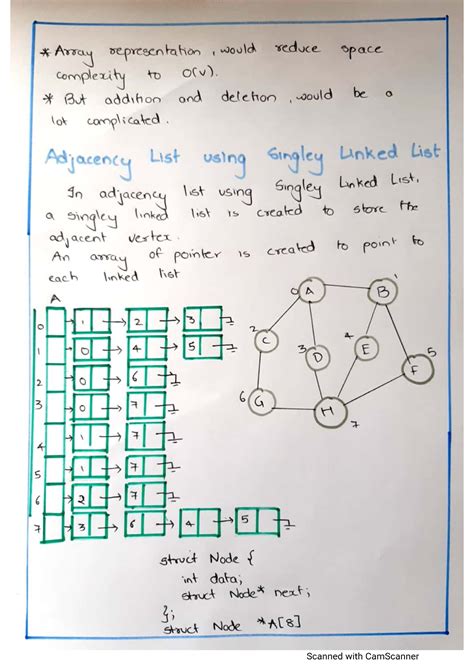 * Array representation, would reduce space
complexity to O(v).
* But addition and deletion, would be a
lot complicated.
Adjacency List using Singley Linked List
In adjacency list using Singley Linked List,
a singley linked list is created to store the
adjacent vertex.
An array of pointer is created to point to
each linked list
A
0 1 2 3
1 0 4 5
2 0 6
3 0 7
4 1 7
5 1 7
6 2 7
7 3 6 4 5
0 A
B 1
2 C
3 D
4 E
F 5
6 G
H 7
struct Node {
int data;
struct Node* next;
};
struct Node *A[8]
Scanned with CamScanner